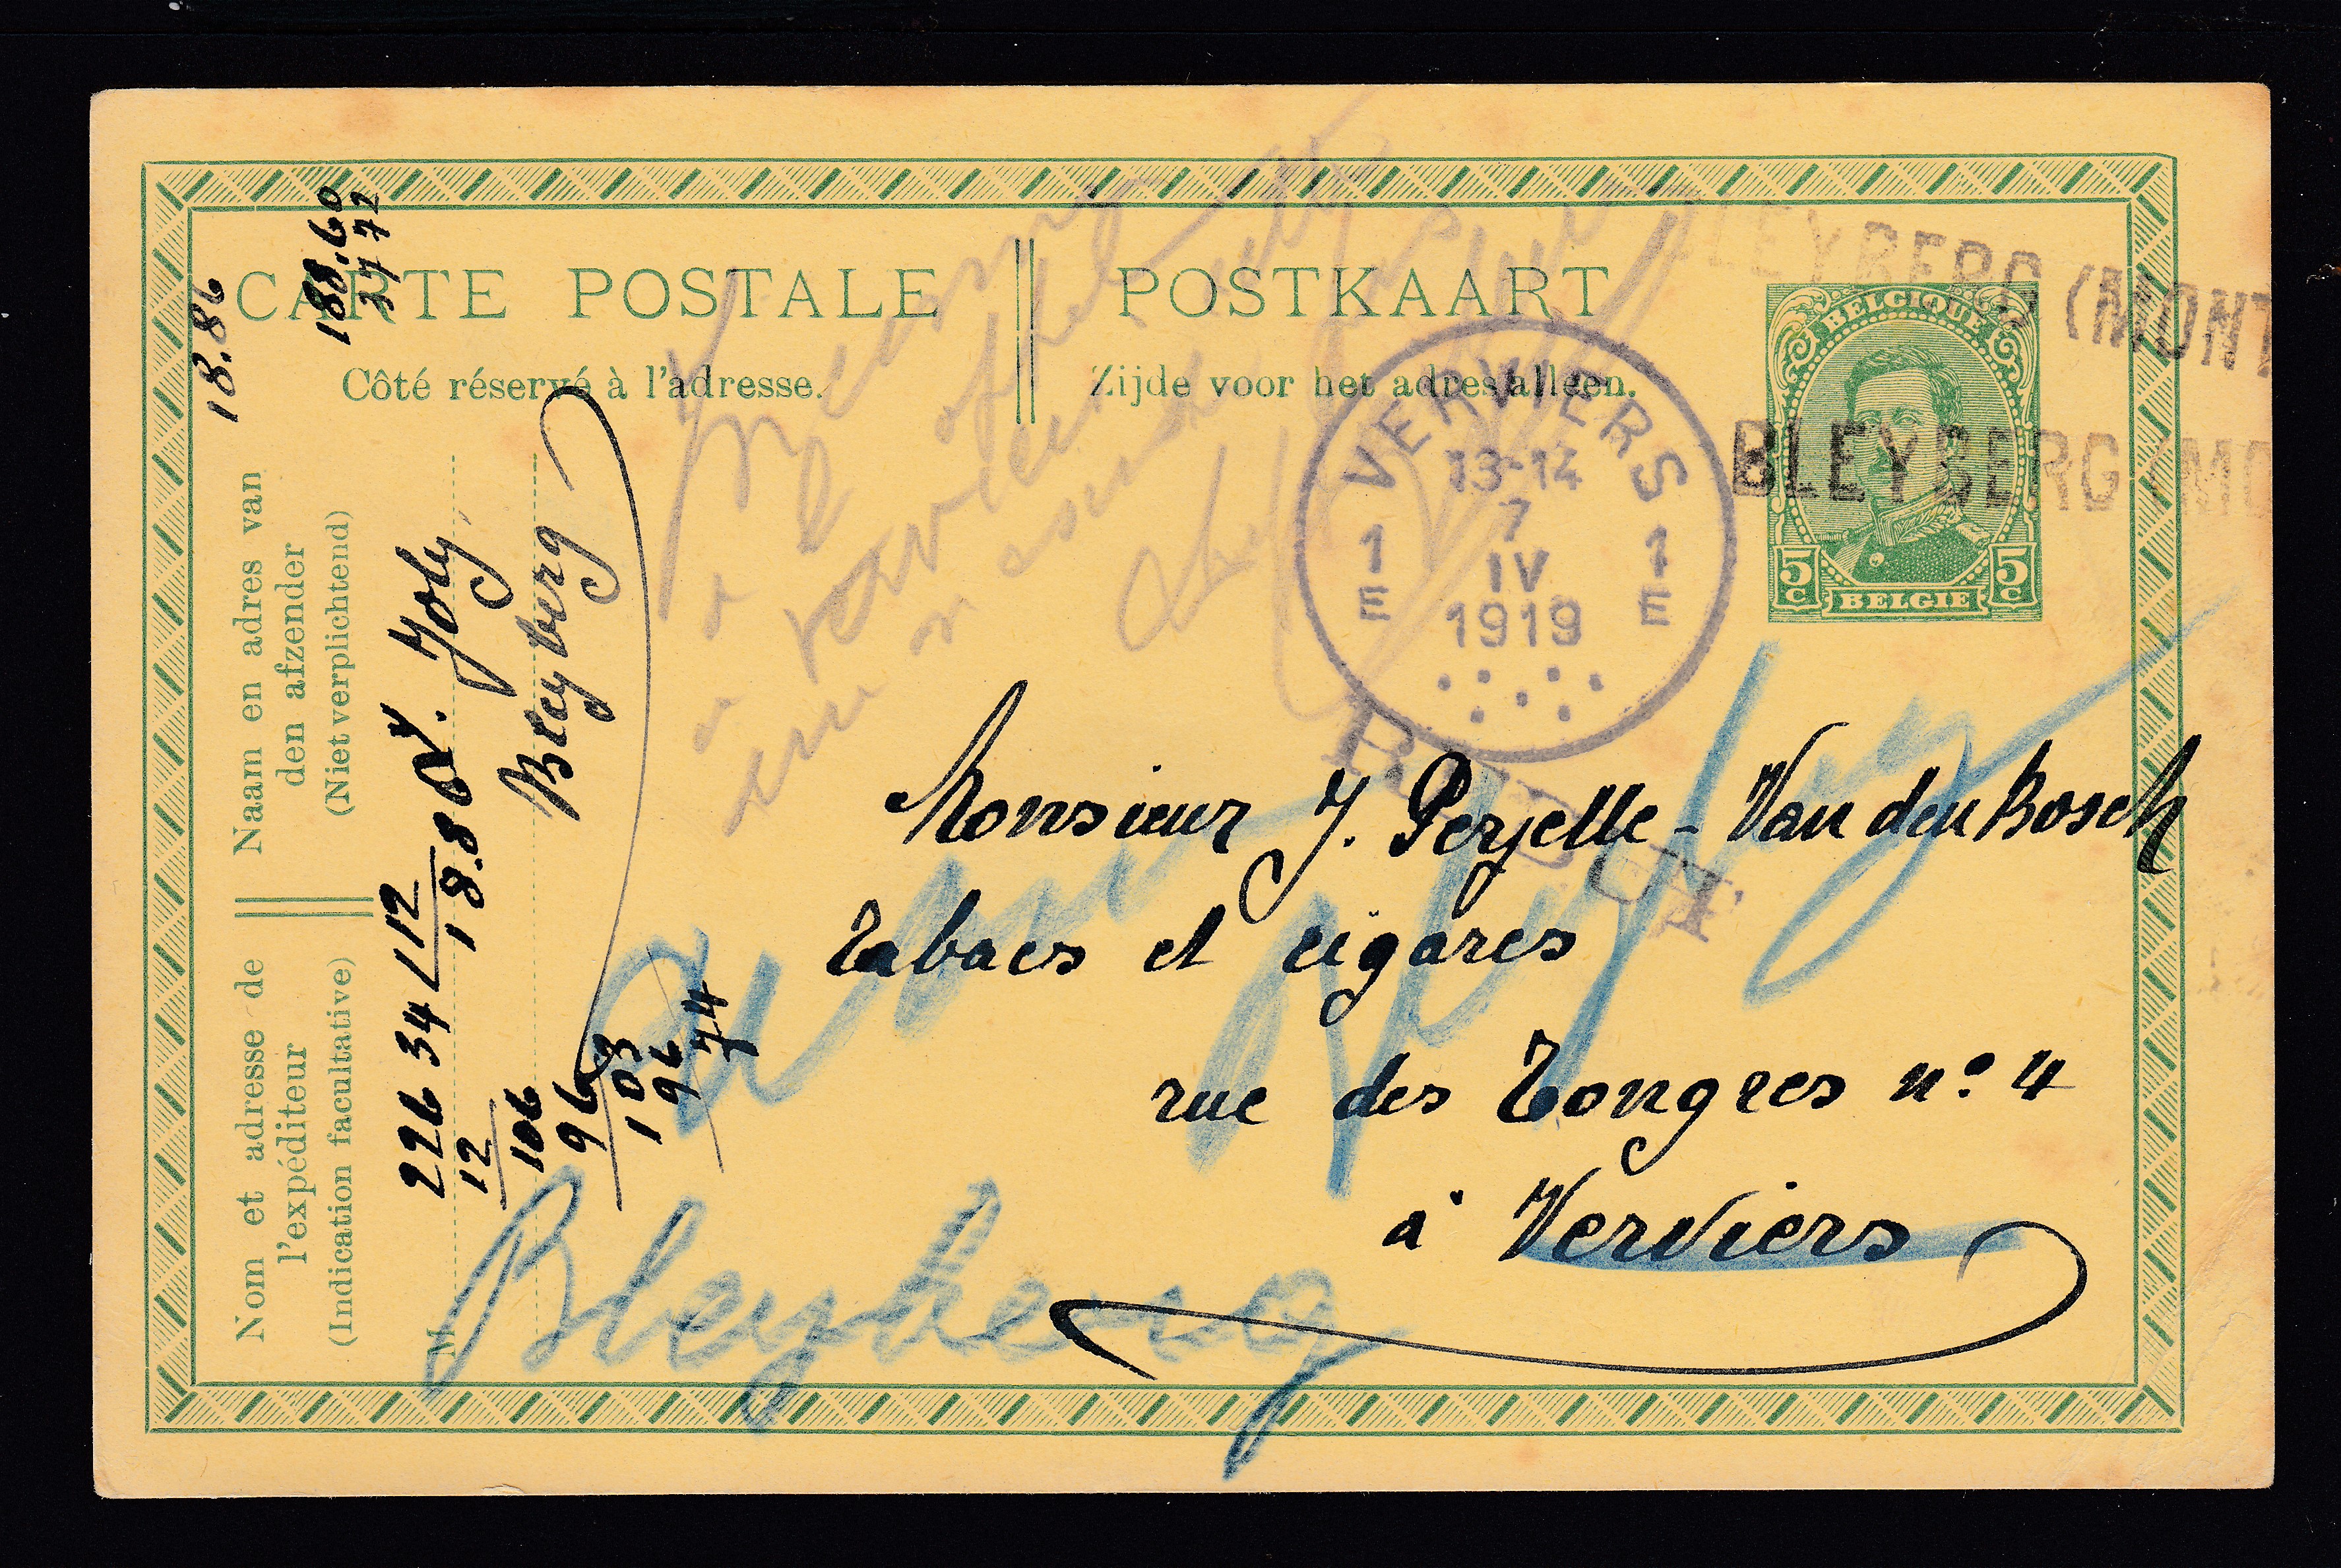 CARTE POSTALE
POSTKAART
Côté réservé à l'adresse.
Zijde voor het adres alleen.
BELGIQUE
5 c
5 c
BELGIE
BLEYBERG (MONT
BLEYBERG (MO
VERVIERS
13-14
7
IV
1919
1 E
1 E
REBUT
Monsieur J. Perzelle - Van den Bosch
Tabacs et cigares
rue des Tongres nº 4
à Verviers
Bleyberg
Naam en adres van
den afzender
(Niet verplichtend)
Nom et adresse de
l'expéditeur
(Indication facultative)
M
Joly
Bleyberg
18.86
188.60
37 72
226 34 12
12 18.86
106
96
103
96
74